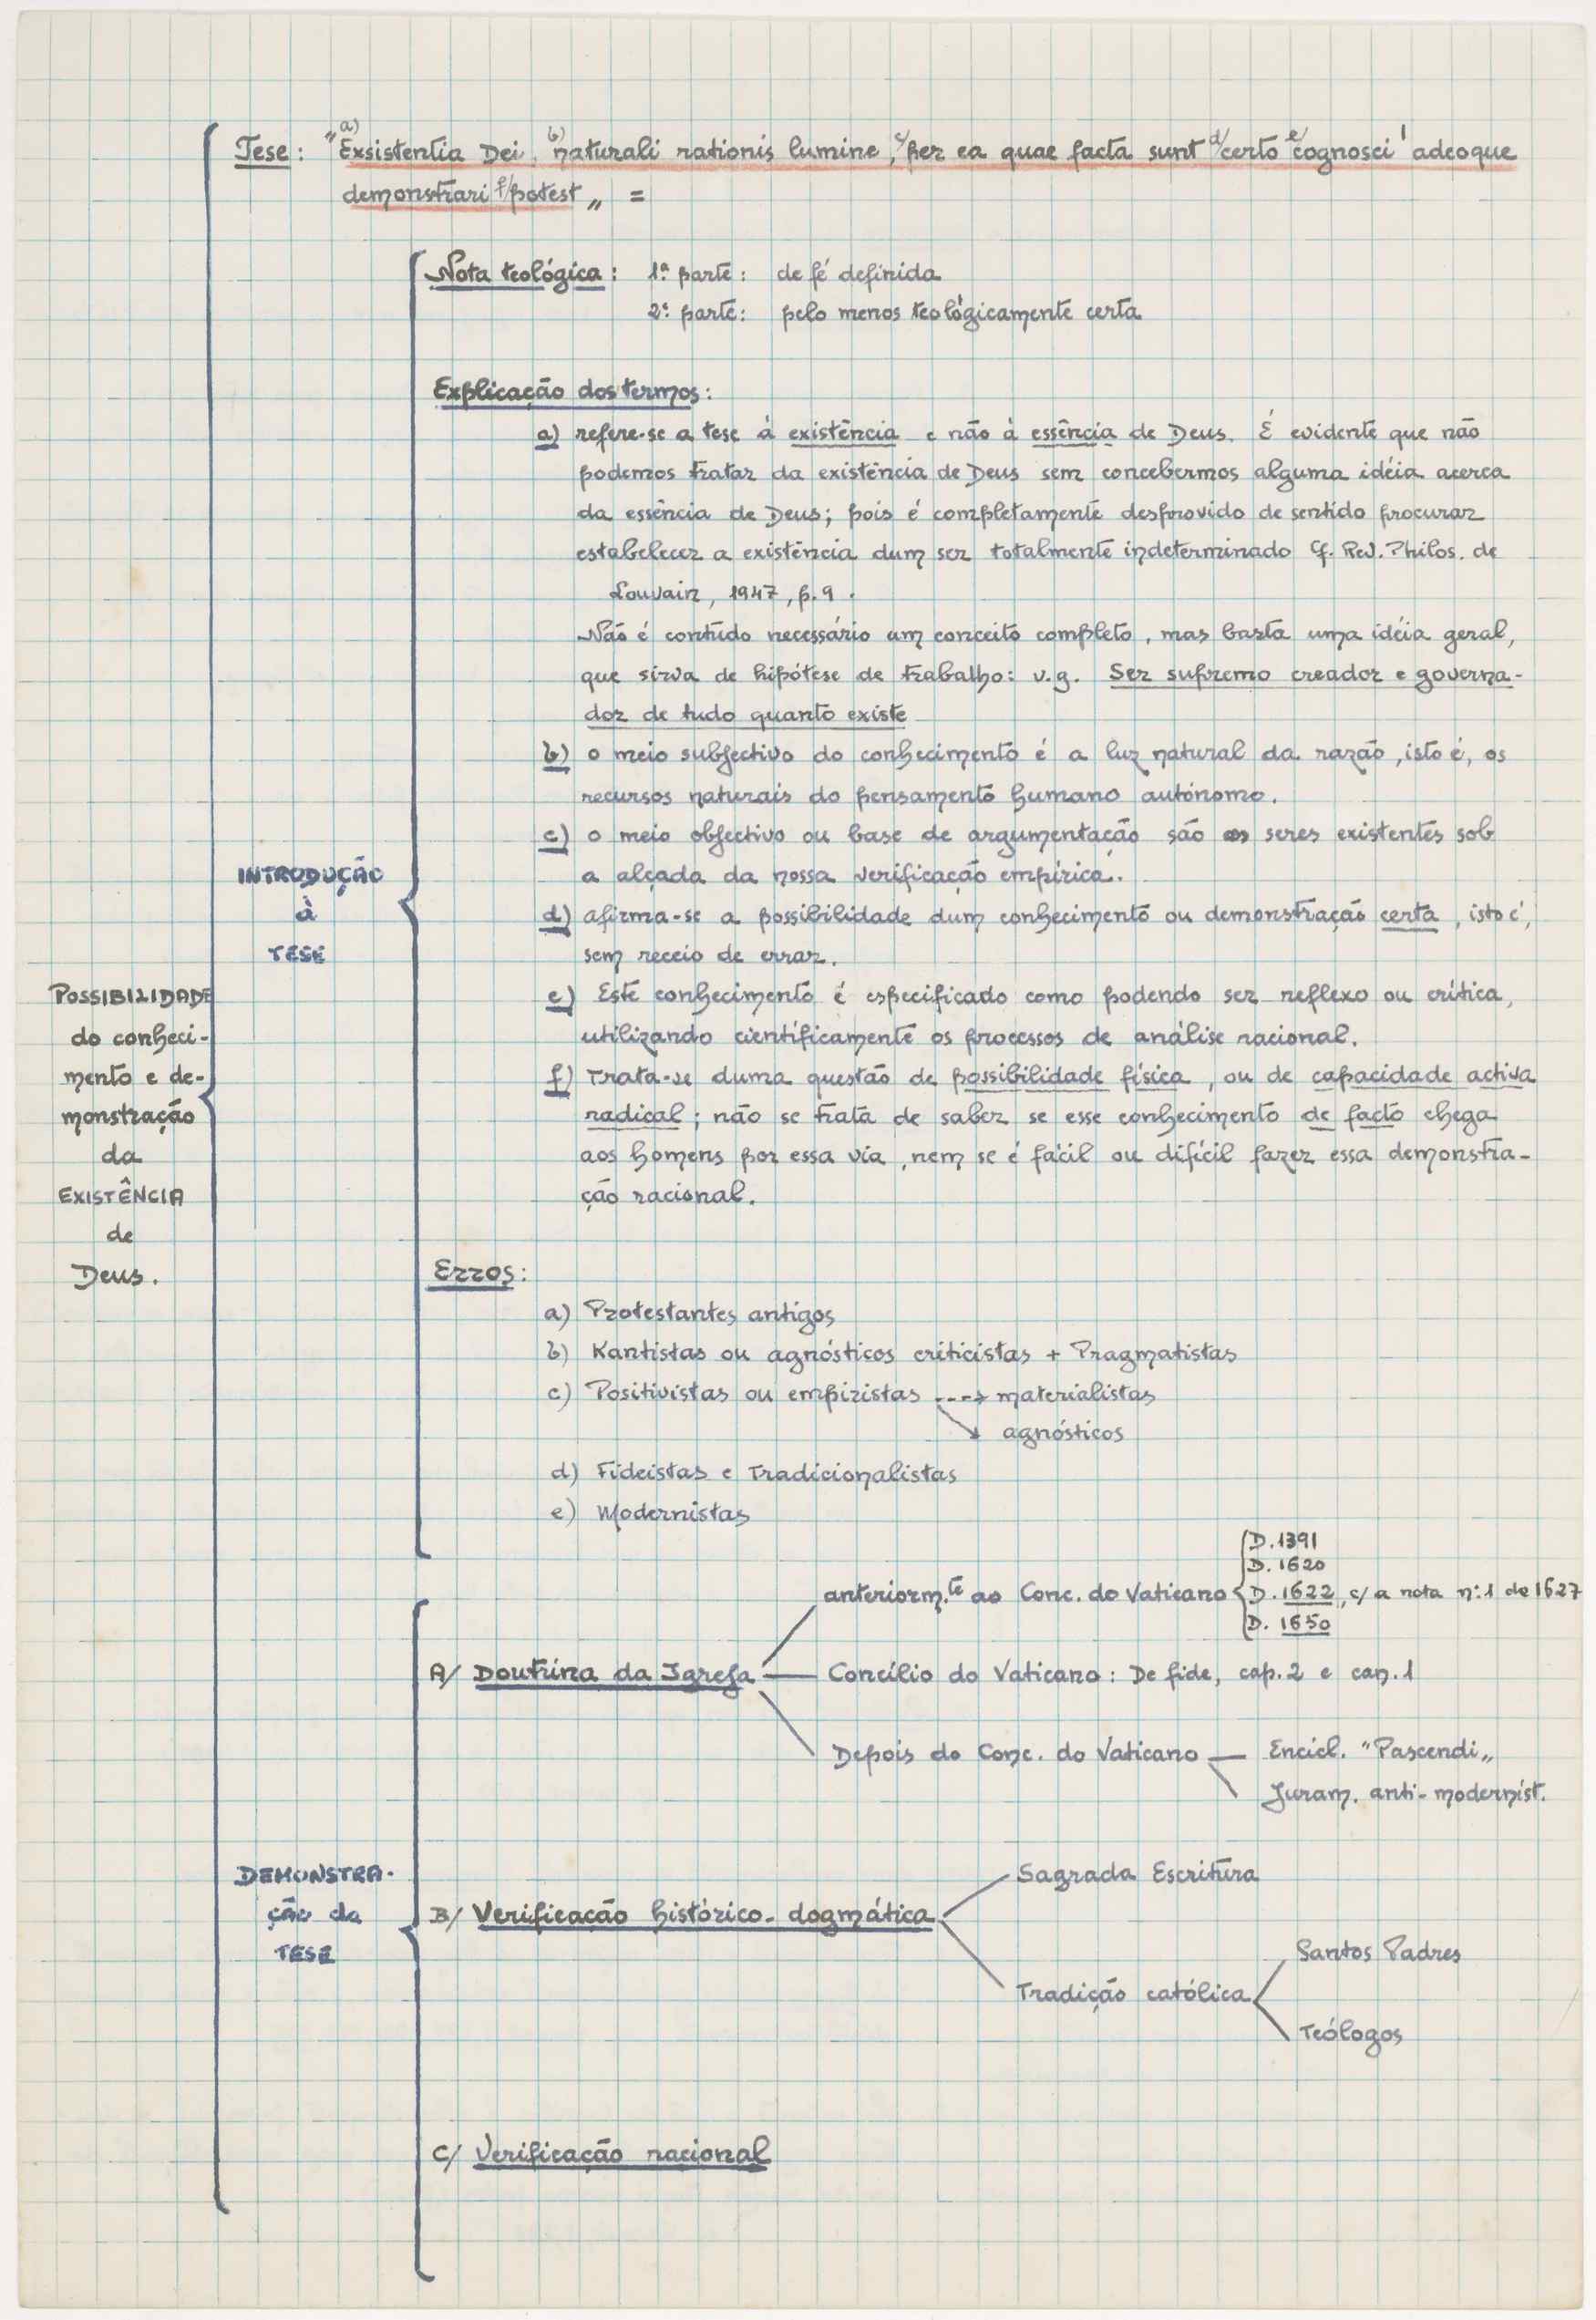 Tese: "a) Exsistentia Dei, b) naturali rationis lumine, c/ per ea quae facta sunt d/ certo e/ cognosci adeoque
demonstrari f/ potest„ =
Nota teológica: 1ª parte: de fé definida
2ª parte: pelo menos teològicamente certa
Explicação dos termos:
a) refere-se a tese à existência e não à essência de Deus. É evidente que não
podemos tratar da existência de Deus sem concebermos alguma idéia acerca
da essência de Deus; pois é completamente desprovido de sentido procurar
estabelecer a existência dum ser totalmente indeterminado Cf. Rev. Philos. de
Louvain, 1947, p.9.
Não é contudo necessário um conceito completo, mas basta uma idéia geral,
que sirva de hipótese de trabalho: v.g. Ser supremo creador e governa-
dor de tudo quanto existe
b) o meio subjectivo do conhecimento é a luz natural da razão, isto é, os
recursos naturais do pensamento humano autónomo.
c) o meio objectivo ou base de argumentação são os seres existentes sob
a alçada da nossa verificação empírica.
d) afirma-se a possibilidade dum conhecimento ou demonstração certa, isto é,
sem receio de errar.
e) Este conhecimento é especificado como podendo ser reflexo ou crítica,
utilizando cientìficamente os processos de análise racional.
f) Trata-se duma questão de possibilidade física, ou de capacidade activa
radical; não se trata de saber se esse conhecimento de facto chega
aos homens por essa via, nem se é fácil ou difícil fazer essa demonstra-
ção racional.
INTRODUÇÃO
à
TESE
POSSIBILIDADE
do conheci-
mento e de-
monstração
da
EXISTÊNCIA
de
Deus.
Erros:
a) Protestantes antigos
b) Kantistas ou agnósticos criticistas + Pragmatistas
c) Positivistas ou empiristas ---> materialistas
agnósticos
d) Fideistas e Tradicionalistas
e) Modernistas
D.1391
D.1620
anteriorm.te ao Conc. do Vaticano D.1622, c/ a nota n:1 de 1627
D. 1650
A/ Doutrina da Igreja — Concílio do Vaticano: De fide, cap.2 e can.1
Depois do Conc. do Vaticano — Encicl. "Pascendi„
Juram. anti-modernist.
DEMONSTRA-
ção da
TESE
Sagrada Escritura
B/ Verificação histórico-dogmática
Santos Padres
Tradição católica
Teólogos
C/ Verificação racional